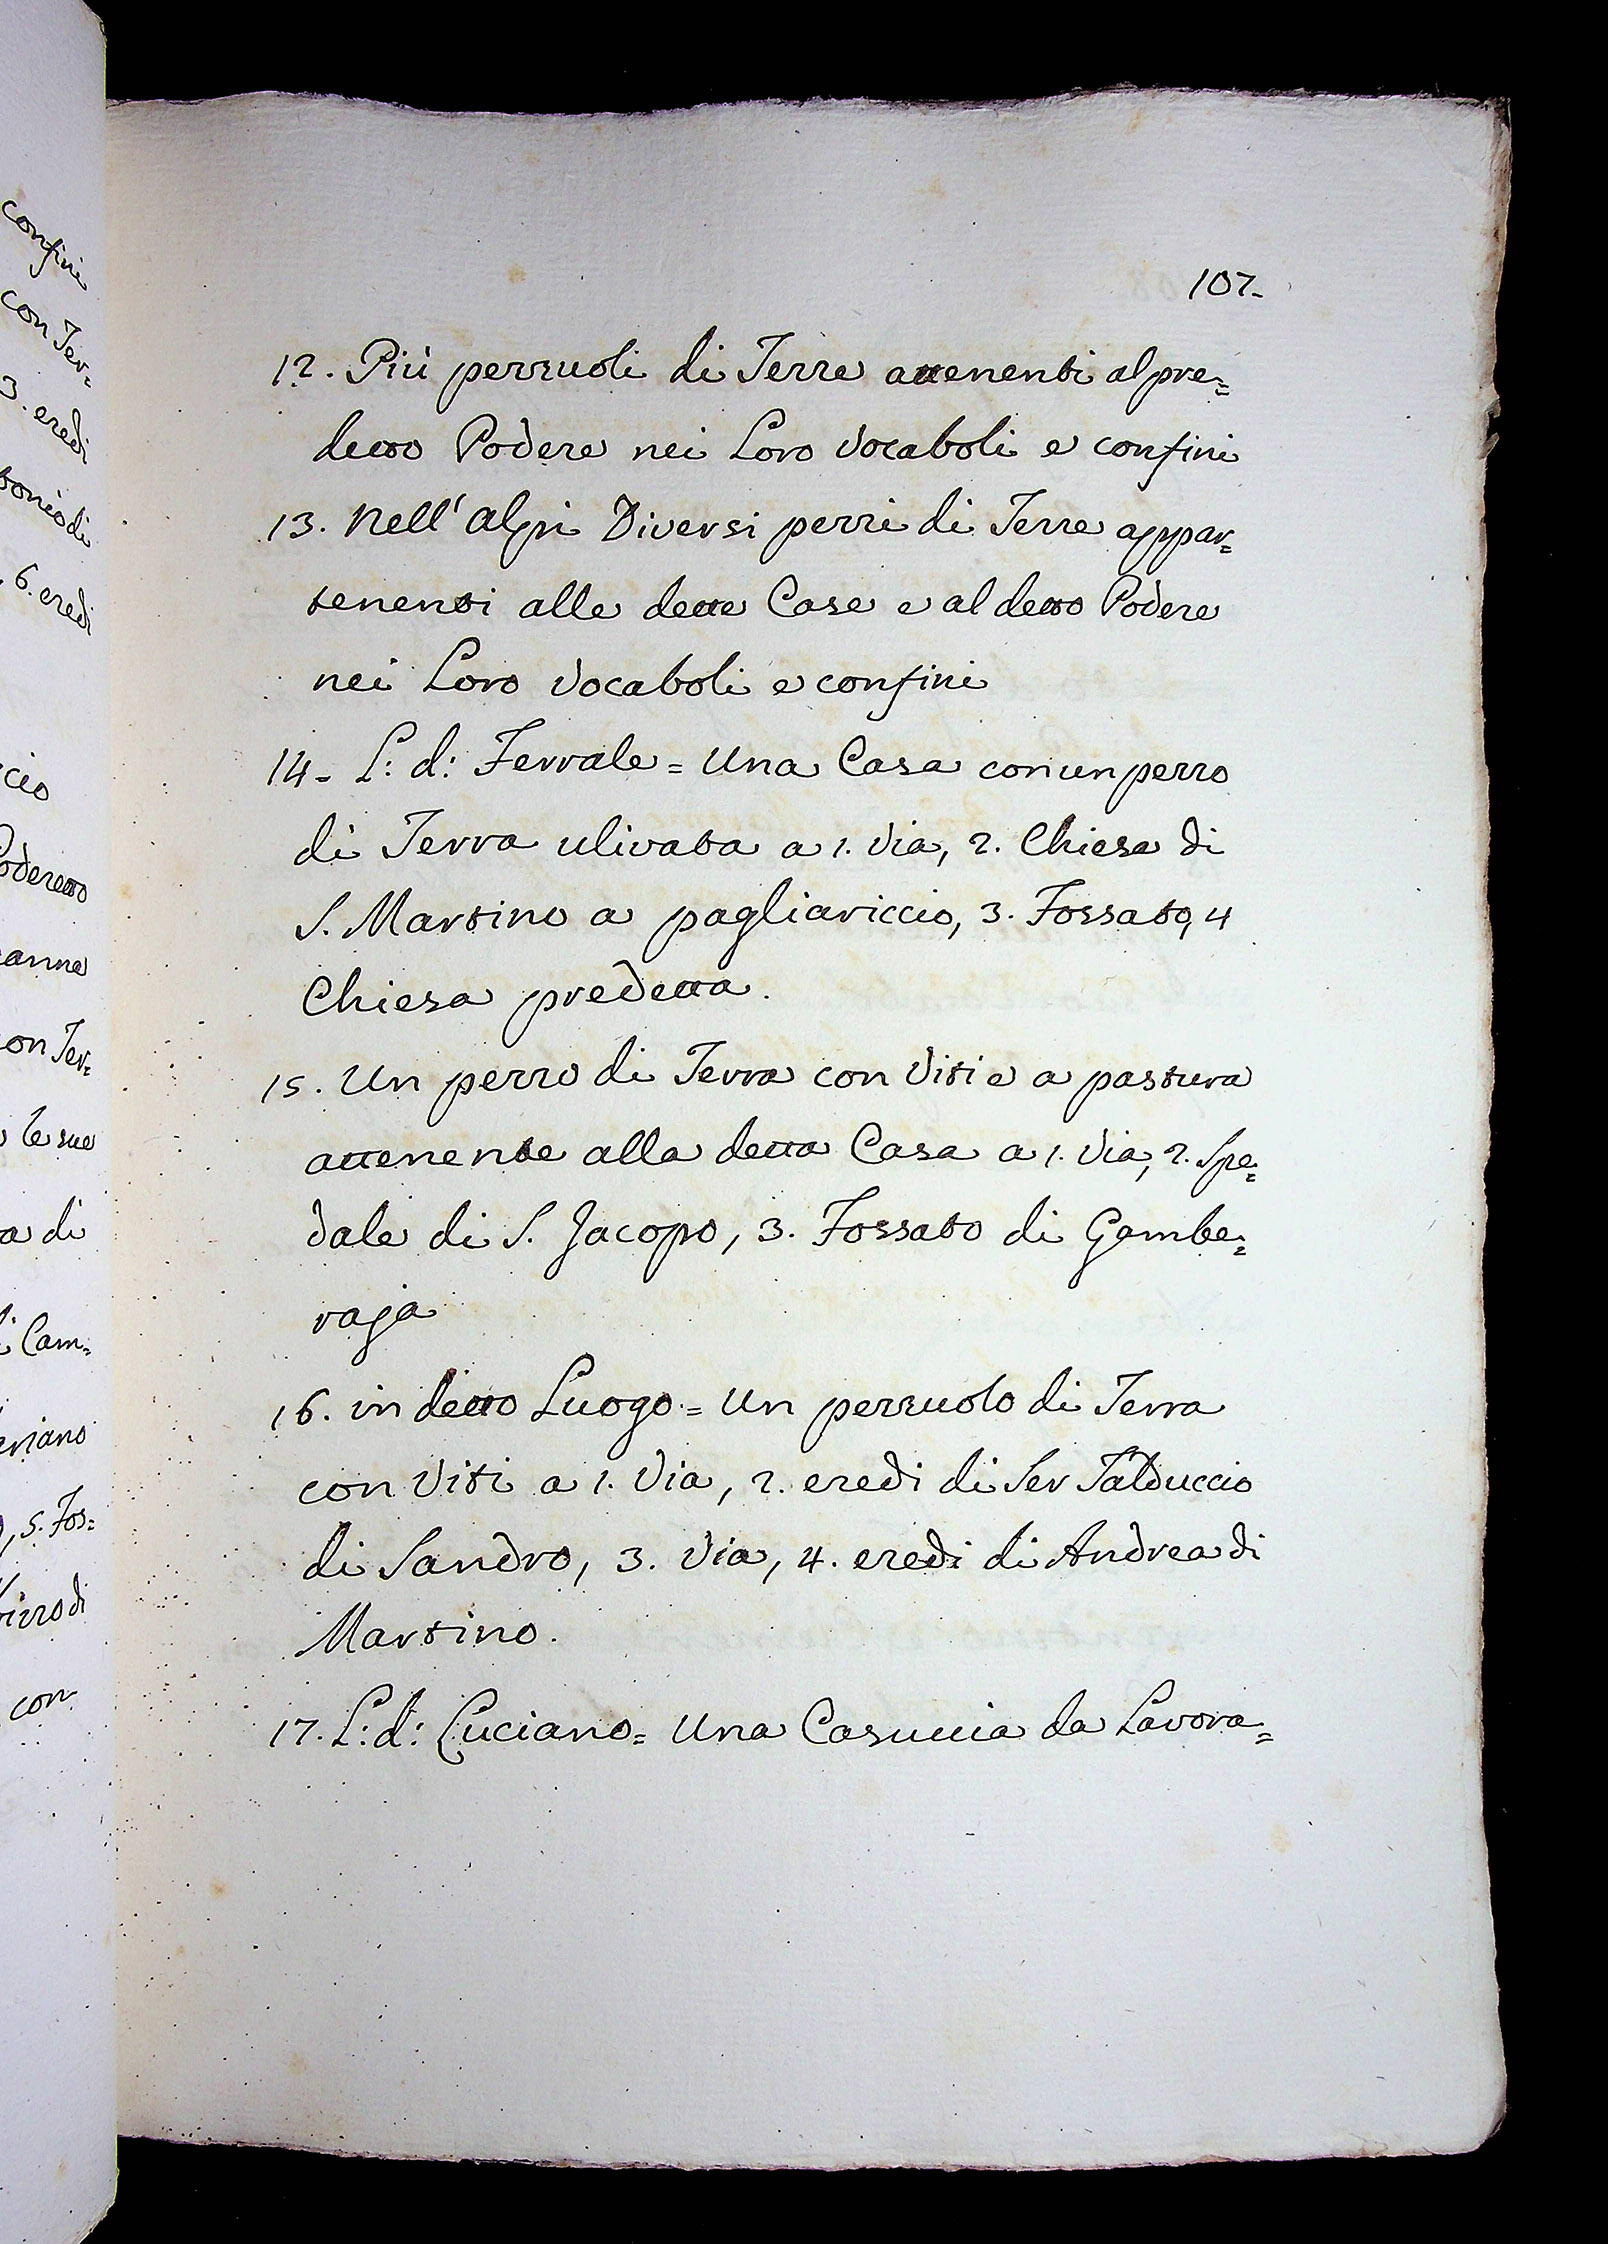 confini
con Ter=
3. eredi
tonio di
6. eredi
Poderetto
le sue
di
Cam=
5. Fos=
con
107.
12. Più pezzuoli di Terre attenenti al pre=
detto Podere nei Loro Vocaboli e confini
13. Nell' alpi Diversi pezzi di Terre appar=
tenenti alle dette Case e al detto Podere
nei Loro Vocaboli e confini
14. L: d: Ferrale = Una Casa con un pezzo
di Terra ulivata a 1. Via, 2. Chiesa di
S. Martino a pagliariccio, 3. Fossato, 4
Chiesa predetta.
15. Un pezzo di Terra con Viti e a pastura
attenente alla detta Casa a 1. Via, 2. Spe=
dale di S. Jacopo, 3. Fossato di Gambe=
raja
16. in detto Luogo = Un pezzuolo di Terra
con Viti a 1. Via, 2. eredi di Ser Talduccio
di Sandro, 3. Via, 4. eredi di Andrea di
Martino.
17. L: d: Luciano = Una Casuccia da Lavora=